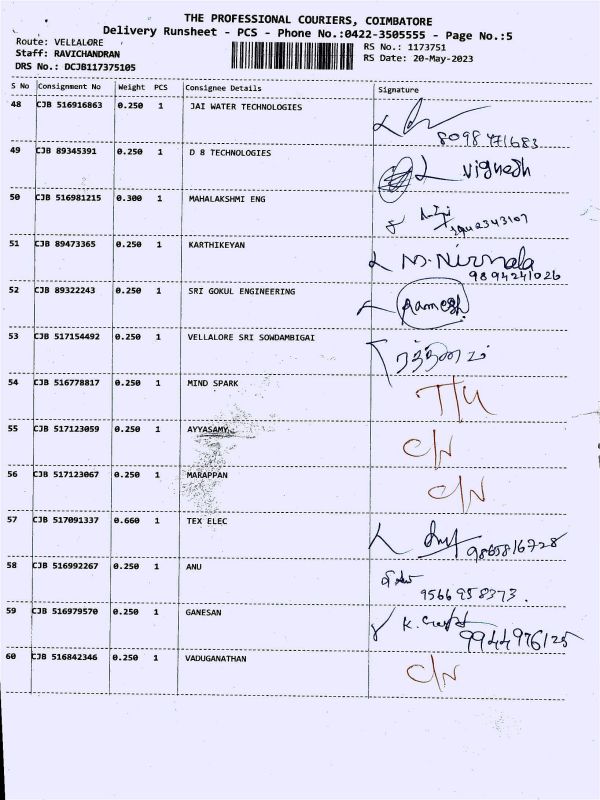 THE PROFESSIONAL COURIERS, COIMBATORE
Delivery Runsheet - PCS - Phone No.:0422-3505555 - Page No.:5
Route: VELLALORE RS No.: 1173751
Staff: RAVICHANDRAN RS Date: 20-May-2023
DRS No.: DCJB117375105
S No Consignment No Weight PCS Consignee Details Signature
48 CJB 516916863 0.250 1 JAI WATER TECHNOLOGIES
8098 471683
49 CJB 89345391 0.250 1 D 8 TECHNOLOGIES Vignesh
50 CJB 516981215 0.300 1 MAHALAKSHMI ENG
51 CJB 89473365 0.250 1 KARTHIKEYAN N.Nirmala
9894241026
52 CJB 89322243 0.250 1 SRI GOKUL ENGINEERING Ramesh
53 CJB 517154492 0.250 1 VELLALORE SRI SOWDAMBIGAI ரத்தினம்
54 CJB 516778817 0.250 1 MIND SPARK T/U
55 CJB 517123059 0.250 1 AYYASAMY C/N
56 CJB 517123067 0.250 1 MARAPPAN C/N
57 CJB 517091337 0.660 1 TEX ELEC 9865816728
58 CJB 516992267 0.250 1 ANU
9566958373.
59 CJB 516979570 0.250 1 GANESAN K.
9944976125
60 CJB 516842346 0.250 1 VADUGANATHAN C/N